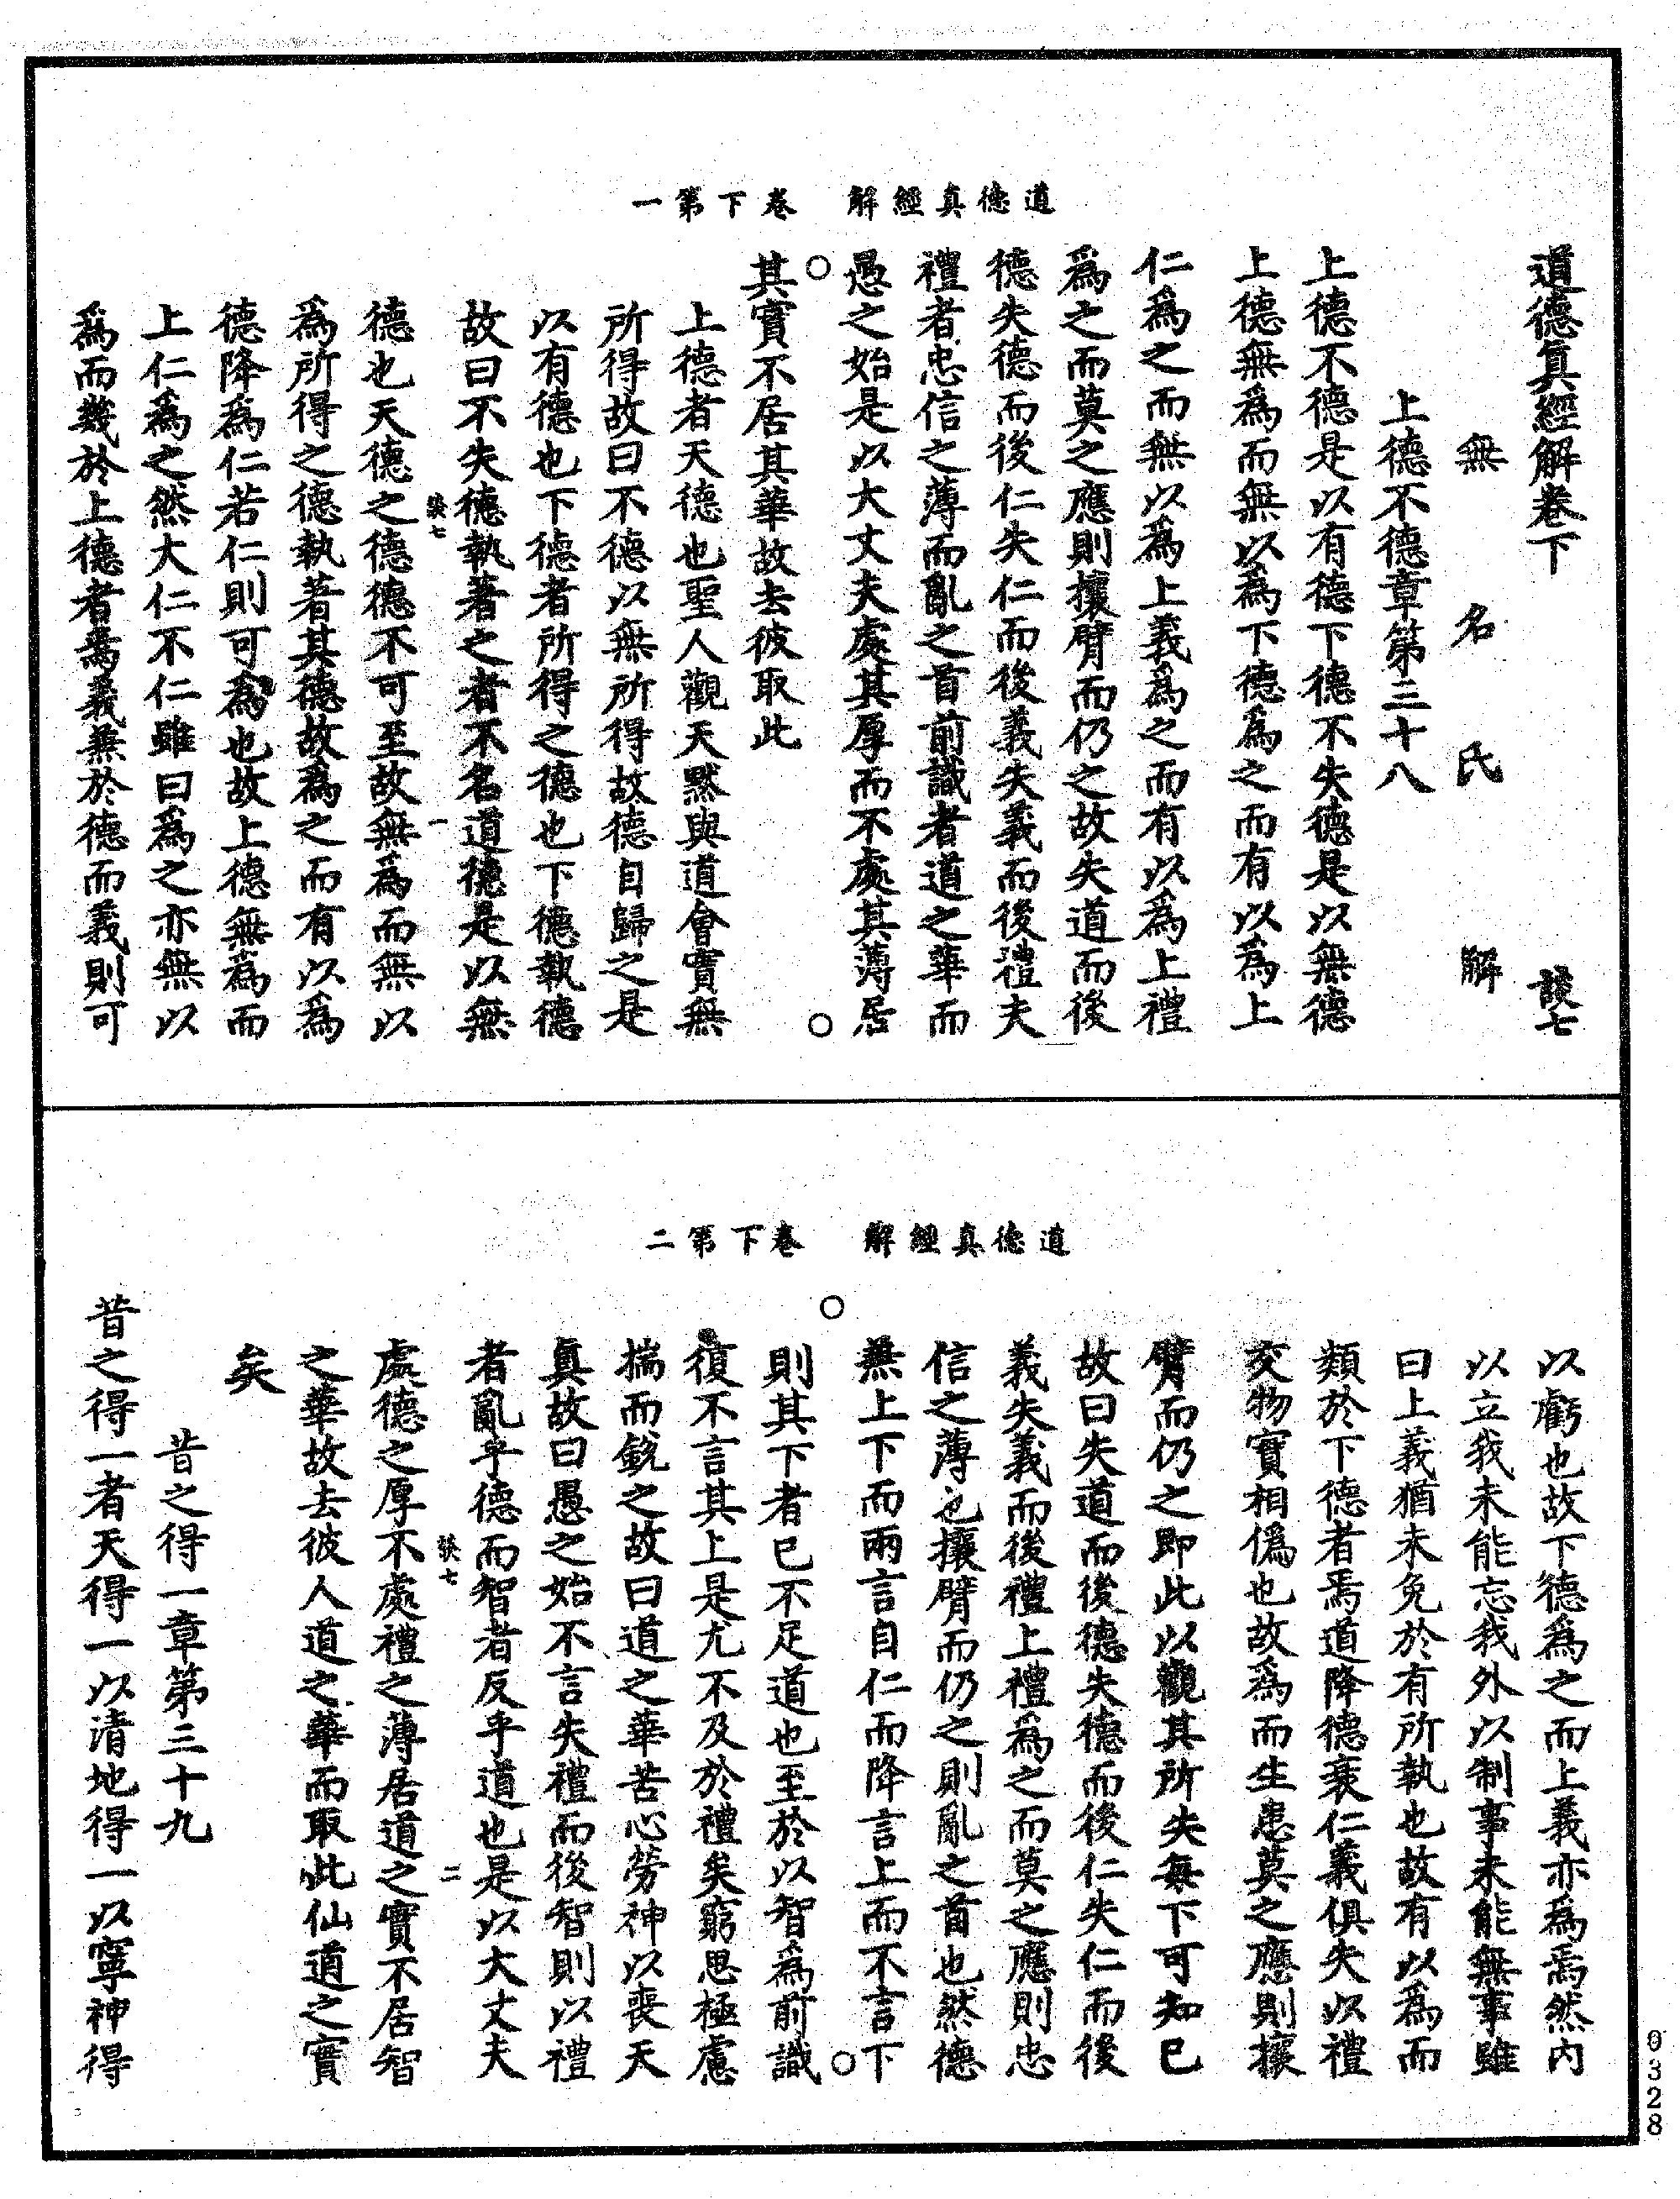 道德真經解 卷下第一
道德真經解卷下 談七
無名氏解
上德不德章第三十八
上德不德是以有德下德不失德是以無德
上德無為而無以為下德為之而有以為上
仁為之而無以為上義為之而有以為上禮
為之而莫之應則攘臂而仍之故失道而後
德失德而後仁失仁而後義失義而後禮夫
禮者忠信之薄而亂之首前識者道之華而
愚之始是以大丈夫處其厚而不處其薄居
其實不居其華故去彼取此
上德者天德也聖人觀天默與道會實無
所得故曰不德以無所得故德自歸之是
以有德也下德者所得之德也下德執德
故曰不失德執著之者不名道德是以無
談七 一
德也天德之德德不可至故無為而無以
為所得之德執著其德故為之而有以為
德降為仁若仁則可為也故上德無為而
上仁為之然大仁不仁雖曰為之亦無以
為而幾於上德者焉義無於德而義則可
道德真經解 卷下第二
以虧也故下德為之而上義亦為焉然內
以立我未能忘我外以制事未能無事雖
曰上義猶未免於有所執也故有以為而
類於下德者焉道降德衰仁義俱失以禮
交物實相偽也故為而生患莫之應則攘
臂而仍之即此以觀其所失每下可知已
故曰失道而後德失德而後仁失仁而後
義失義而後禮上禮為之而莫之應則忠
信之薄也攘臂而仍之則亂之首也然德
無上下而兩言自仁而降言上而不言下
則其下者已不足道也至於以智為前識
復不言其上是尤不及於禮矣窮思極慮
揣而銳之故曰道之華苦心勞神以喪天
真故曰愚之始不言失禮而後智則以禮
者亂乎德而智者反乎道也是以大丈夫
談七 二
處德之厚不處禮之薄居道之實不居智
之華故去彼人道之華而取此仙道之實
矣
昔之得一章第三十九
昔之得一者天得一以清地得一以寧神得
0328